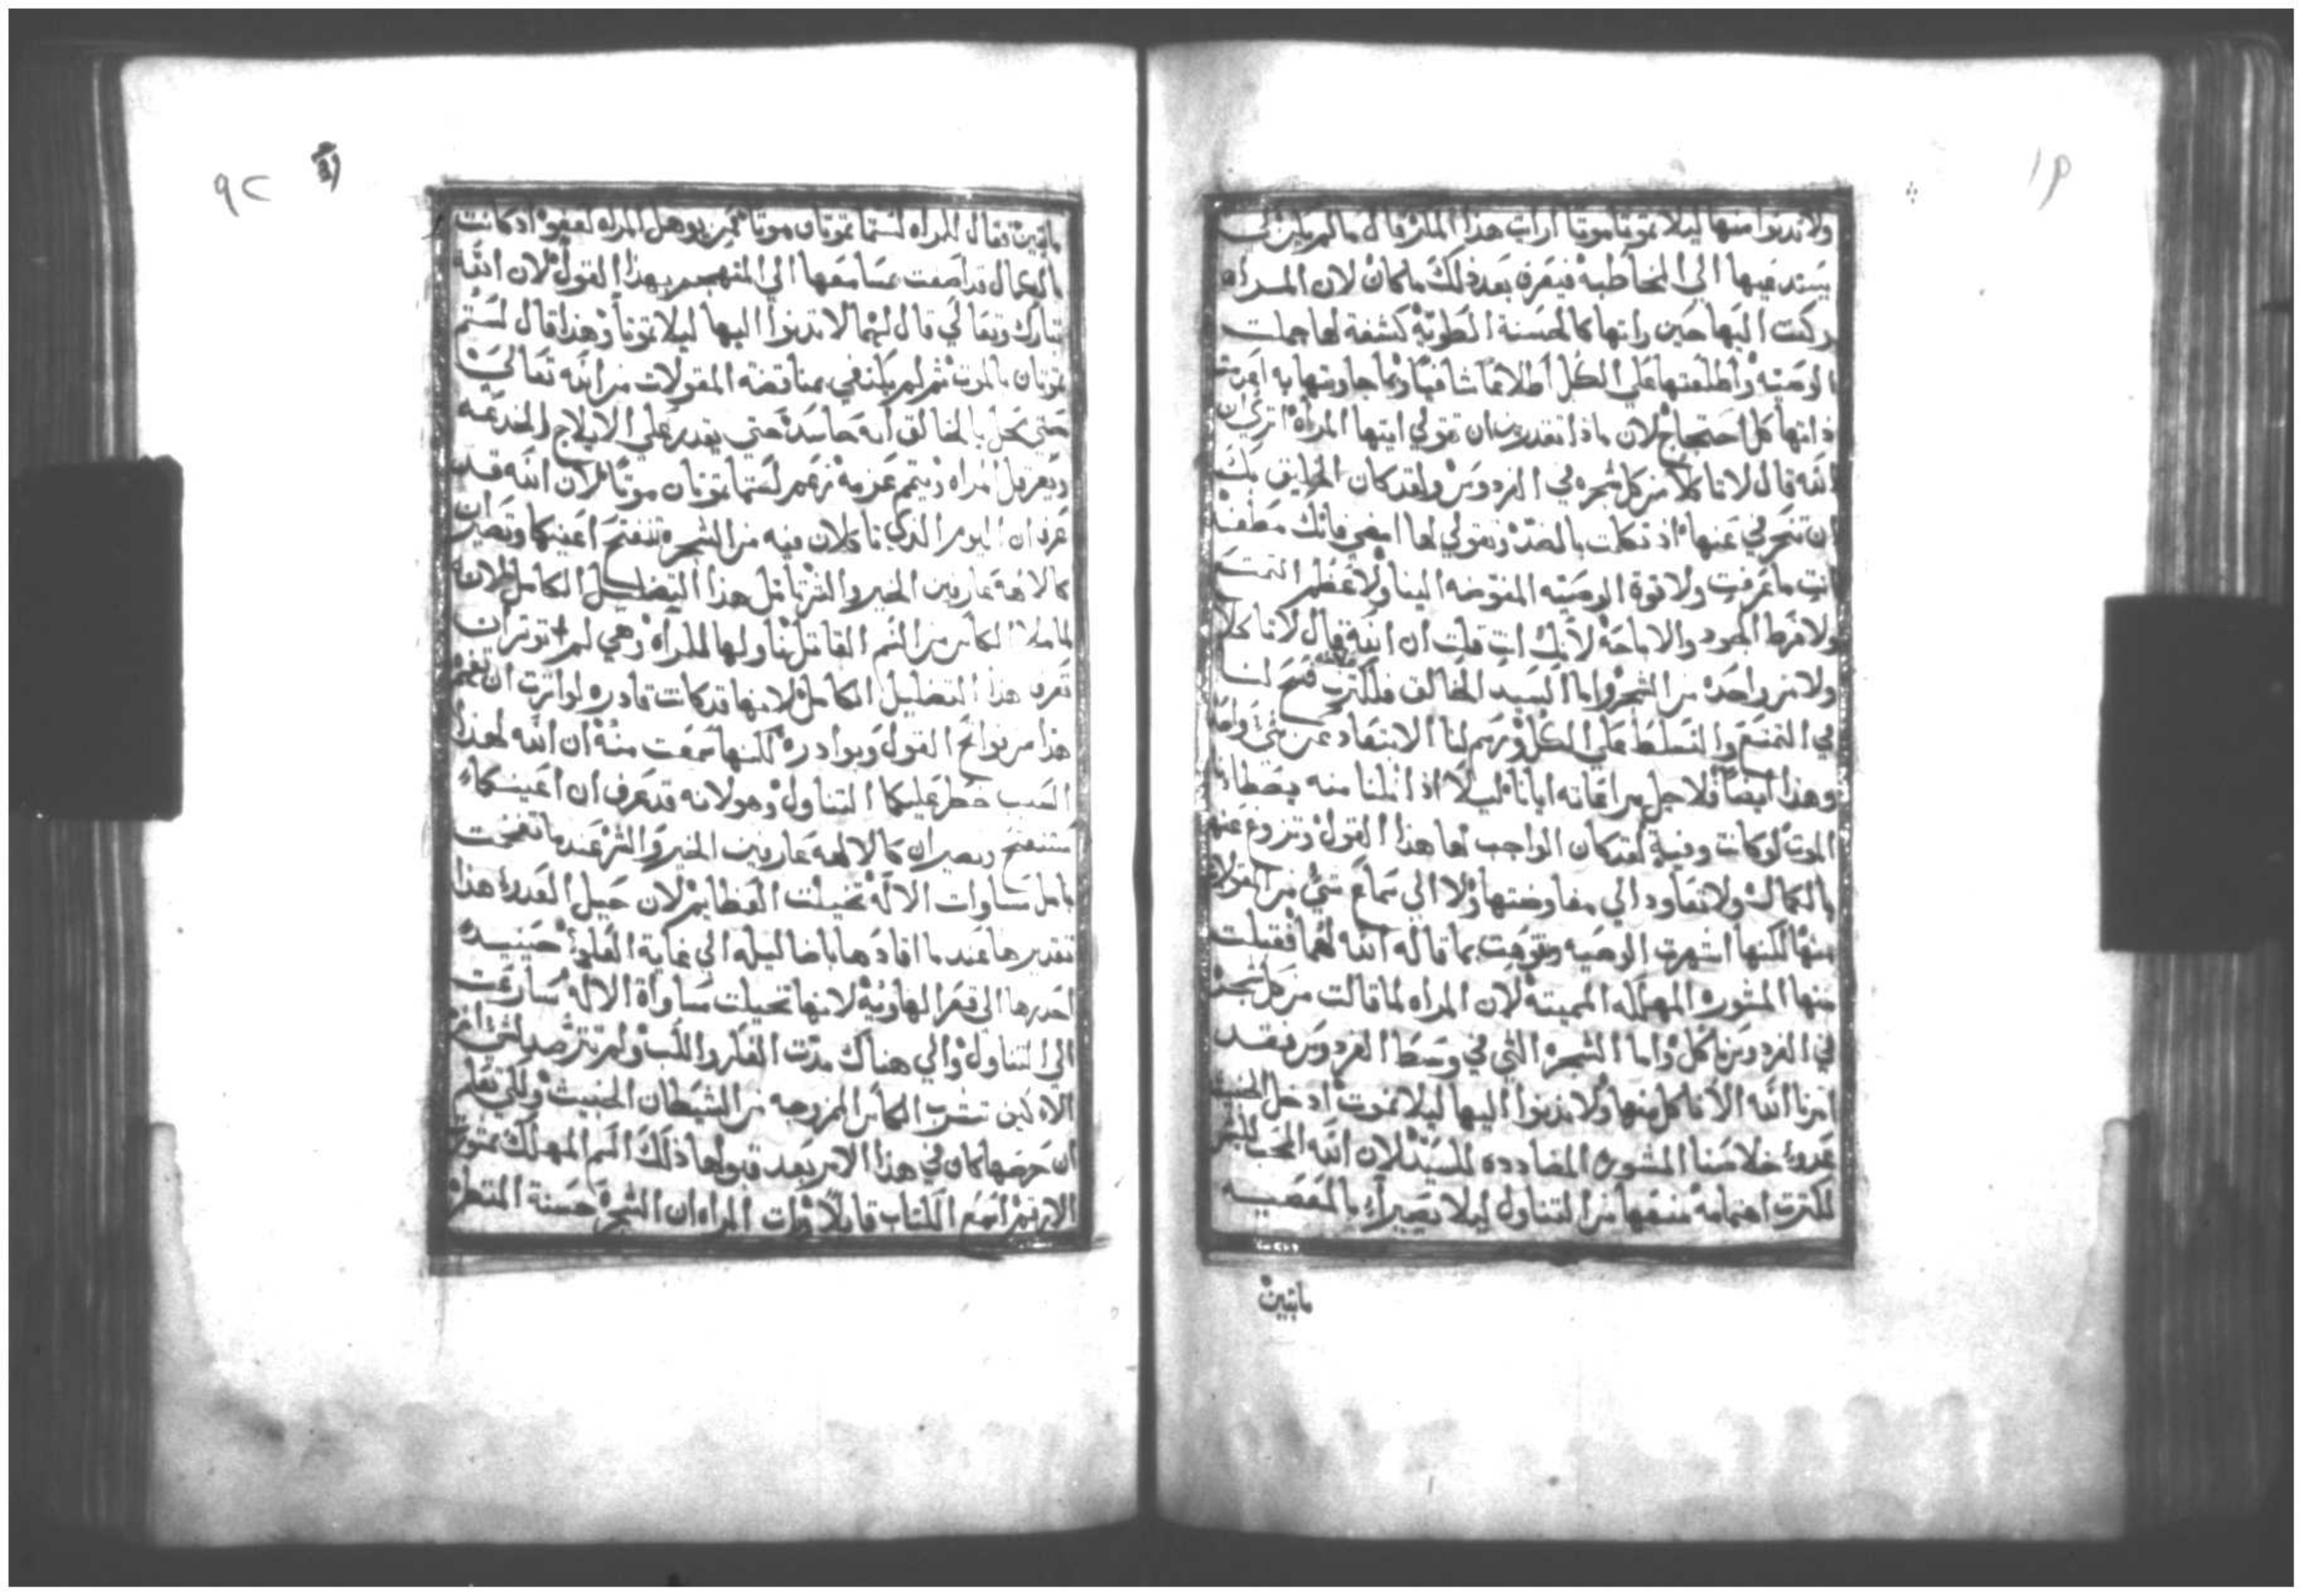 ولا تدنوا منها ليلا تموتا موتا ارايت هذا المكر قال ما لم يكن لكى
يستدعيها الي المخاطبه فيعرف بعد ذلك ما كان لان المراه
ركنت اليها حين راتها كالحسنة الطويّة كشفة لها جملت
الوصيّه واطلعتها علي الكل اطلاعًا شافيًا وبما جاوبتها به اعدمت
ذاتها كل احتجاج لان ماذا تقدرين ان تقولي ايتها المرأة اتري ان
الله قال لا تاكلا من كل شجره في الفردوس ولقد كان الحرايق بك
ان تنحرفي عنها اذ تكلمت بالضدّ وتقولي لها امضي فانك مطغيه
انت ما عرفت ولا قوة الوصيّه المفوضه الينا ولا عظم التمتع
ولا فرط الجود والاباحة لانك انت قلت ان الله قال لا تاكلا
ولا من واحده من الشجر واما السيد الخالق فلكثرت فسح لنا
في التمتع والتسلط علي الكل ورسم لنا الابتعاد عن شي واحد
وهذا ايضًا فلاجل مراعاته ايانا ليلا اذا نلنا منه يصطادنا
الموت لو كانت وفية لقد كان الواجب لها هذا القول وتزوغ عنها
بالكمال ولا تعاود الي مفاوضتها ولا الي سماع شي من القولات
منها لكنها اشهرت الوصيه وتفوهت بما قاله الله لهما فقبلت
منها المشوره المهلكه المميتة لان المراه لما قالت من كل شجر
في الفردوس ناكل واما الشجره التي في وسط الفردوس فقد
امرنا الله الا ناكل منها ولا ندنوا اليها ليلا نموت ادخل الخبيث
عدوّ خلاصنا المشوره المضادده للسيّد لان الله المحب للبشر
لكثرت اهتمامه منعها من التناول ليلا تصيرا بالمعصيه
مايتين
٩٢
مايتين فقال للمراه لستما تموتان موتا فمن يوهل المراه لعفو اذ كانت
بالكمال قد اصغت بمسامعها الي المتهجم بهذا القول لان الله
تبارك وتعالي قال لهما لا تدنوا اليها ليلا تموتا وهذا قال لستم
تموتان بالموت ثم لم يكتفي بمناقضة المقولات من الله تعالي
حتي تحل بالخالق انه حاسد حتي يقدر علي الايلاج والخدعه
ويعرقل المراه ويتمم عزمة زعم لستما تموتان موتًا لان الله قد
عرف ان اليوم الذي تاكلان فيه من الشجره تنفتح اعينكما وتصيران
كالالهة عارفين الخير والشر تامل هذا التضليل الكامل لانه
لما ملا الكاس من السم القاتل ناولها للمرأه وهي لم توثر ان
تعرف هذا التضليل الكامل لانها قد كانت قادره لو اثرت ان تفهم
هذا من فواتح القول وبوادره لكنها سمعت منه ان الله لهذا
السبب حظر عليكما التناول وهو لانه قد عرف ان اعينكما
ستنفتح وتصيران كالالهه عارفين الخير والشر عند ما تنفخت
بامل مساوات الاله تخيلت العظايم لان حيل العدو هذا
تقديرها عند ما اقادها باضاليله الي غاية العلو حينيد
احدرها الى قعر الهاوية لانها تخيلت مساواة الاله سارعت
الي التناول والي هناك مدّت الفكر واللب ولم تترصد لشي اخر
الا لكن تشرب الكاس الممزوجه من الشيطان الخبيث ولكي تعلم
ان حرصها كان في هذا الامر بعد قبولها ذلك السم المهلك بمشورة
الارقم اسمع الكتاب قايلًا ورات المراه ان الشجرة حسنة المنظر